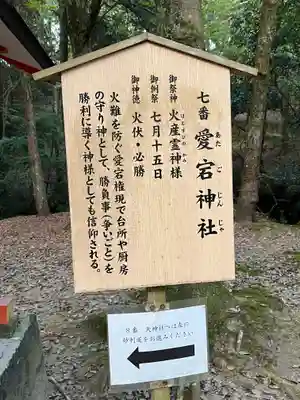 七番 愛宕神社
あたごじんじゃ
御祭神 火産霊神様
ほむすびのかみ
御例祭 七月十五日
御神徳 火伏・必勝
火難を防ぐ愛宕権現で台所や厨房
の守り神として、勝負事(争いごと)を
勝利に導く神様としても信仰される。
８番 天神社へは左の
砂利道をお進みください